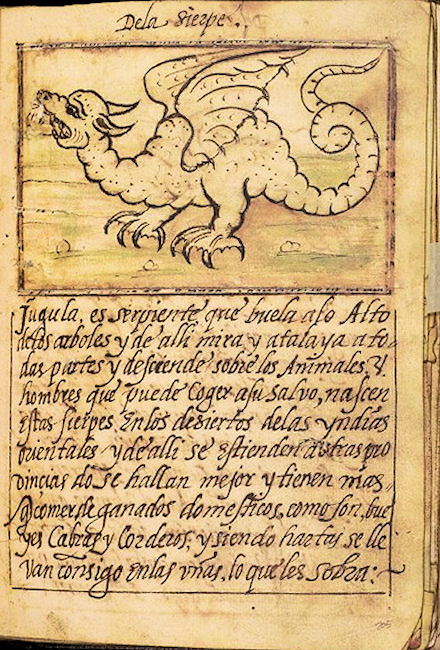 Dela Sierpe.
Jugula, es serpiente que buela a lo Alto
delos arboles y de alli mira y atalaya a to-
das partes y desciende sobre los Animales, y
hombres que puede Coger a su salvo, nascen
estas sierpes Enlos desiertos delas yndias
orientales y de alli se estienden a otras pro
vincias do se hallan mejor y tienen mas,
q comer, de ganados domesticos, como son, bue
yes Cabras y Corderos, y siendo hartas, se lle
van consigo enlas vñas, lo que les sobra:~